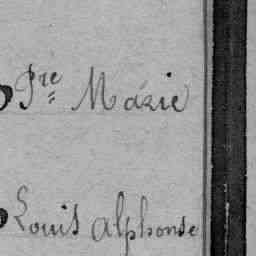 Pre Marie
Louis Alphonse